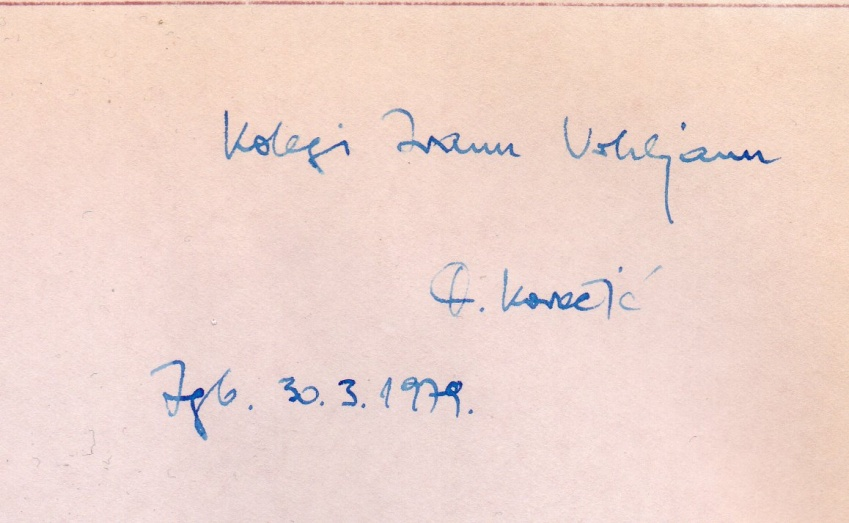 Kolegi Ivanu Vohljanu
Kovačić
Zgb. 30. 3. 1979.